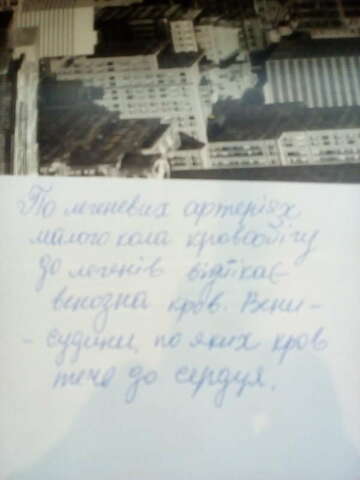 По легеневих артеріях
малого кола кровообігу
до легенів відтікає
венозна кров. Вени -
- судини, по яких кров
тече до серця.